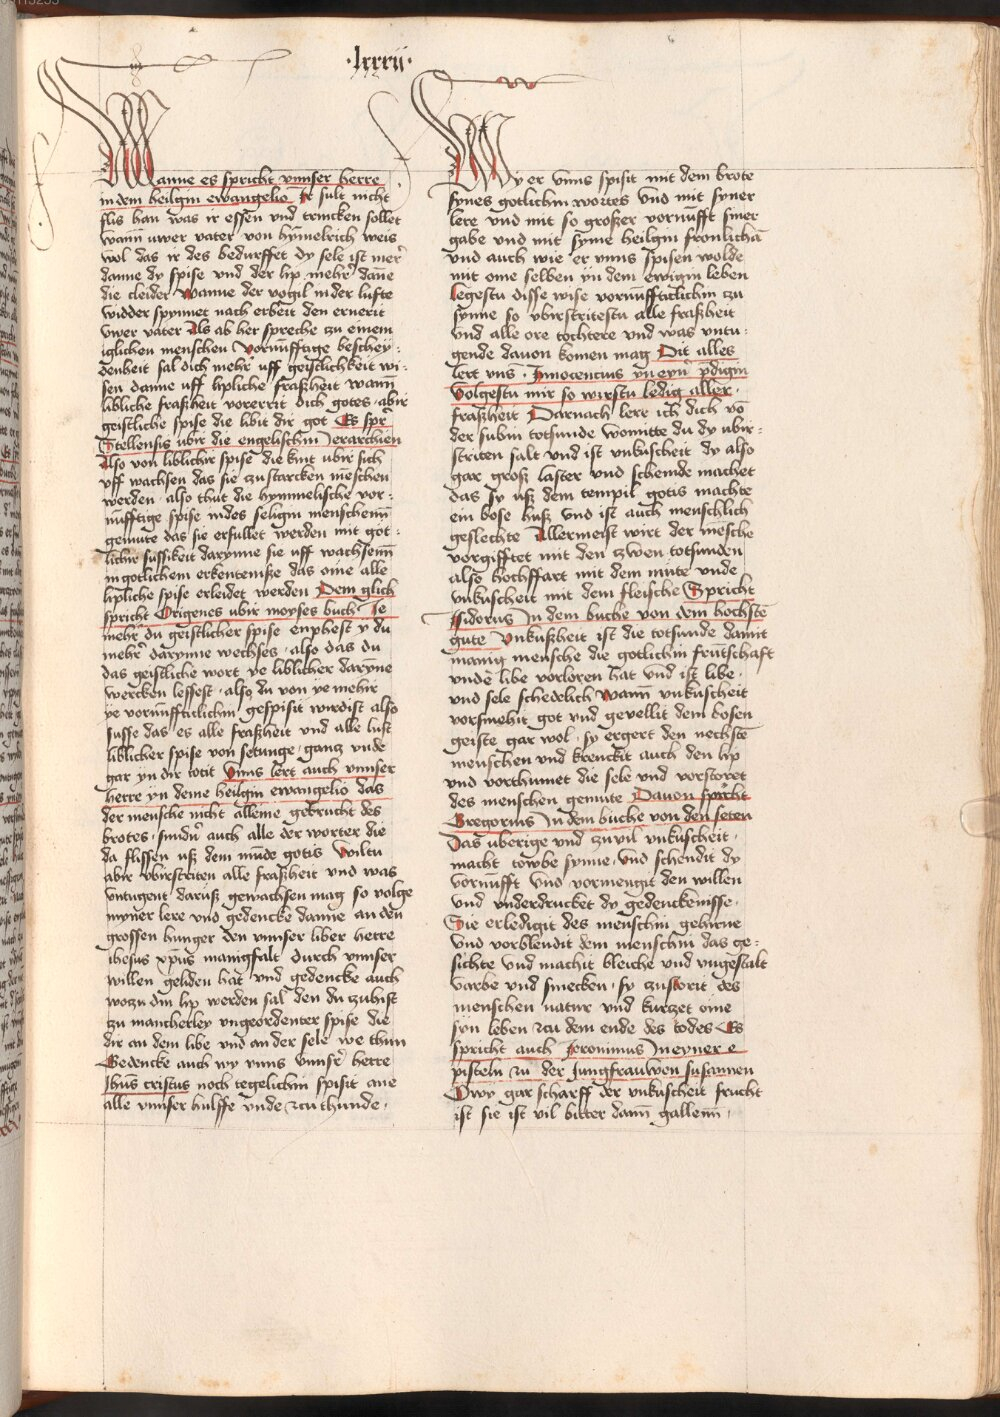 ·lxxxii·
Wanne es spricht vnnser herre
in dem heilgin ewangelio Ir sult nicht
flis han was ir essen vnd trincken sollet
wann uwer vater von hymelrich weis
wol das ir des bedurffet dy sele ist mer
danne dy spise vnd der lip mehr dane
die cleider Wanne der vogil in der lufte
widder spynnet nach erbeit den ernerit
vwer vater Als ab her spreche zu einem
iglichen menschen Vornufftige beschey-
denheit sal dich mehr uff geistlichkeit wi-
sen danne uff lipliche fraßheit wann
libliche fraßheit vorerrit dich gotes · abir
geistliche spise die libit dir got Es spr
Stellensis ubir die engelischin Jerarchien
Also von liblichir spise die kint ubir sich
vff wachsen das sie zu starcken meschen
werden · also thut die hymmelische vor-
nufftige spise in des seligin menschenn
gemute das sie erfullet werden mit got-
lichir sussikeit darynne sie uff wachsenn
in gotlichem erkenteniße das eine alle
lipliche spise erleidet werden Dem glich
spricht Origenes ubir moyses buch Ie
mehr du geistlicher spise enphest y du
mehr darynne wechses · also das du
das geistliche wort ye liblicher daryne
wercken lessest · also du von ye mehir
ye vornuffticlichin gespisit wirdist also
susse das es alle fraßheit vnd alle lust
liblicher spise von setunge · ganz vnde
gar yn dir totit Vnns lert auch vnnser
herre yn deme heilgin ewangelio das
der mensche nicht alleine gebrucht des
brotes · sundir auch alle der worter die
da flissen uß dem munde gotis Wiltu
abir vbirstriten alle fraßheit vnd was
vntugent daruß gewachsen mag so volge
myner lere vnd gedencke danne an den
grossen hunger den vnnser liber herre
ihesus xpus manigfalt durch vnnser
willen geliden hat vnd gedencke auch
wozu din lip werden sal den du zuhist
zu mancherley vngeordenter spise die
dir an dem libe vnd an der sele we thun
Gedencke auch wy vnns vnnser herre
Jhus cristus noch tegelichin spisit ane
alle vnnser hulffe vnde zcuthunde ·
Wy er vnns spisit mit dem brote
synes gotlichin wortes vnd mit syner
lere vnd mit so großer vornufft siner
gabe vnd mit syme heilgin fronlicha
vnd auch wie er vnns spisen wolde
mit ome selben yn dem ewigin leben
legestu disse wise vornuffticlichin zu
synne so vbirstritestu alle fraßheit
vnd alle ore tochtere vnd was vntu-
gende dauon komen mag Dit alles
lert vns · Innocencius yn eyn pdigin
Volgestu mir so wirstu ledig aller ·
fraßheit Darnach lere ich dich vo
der subin totsunde womitte du dy ubir-
striten salt vnd ist vnkuscheit dy also
gar groß laster vnd schemde machet
das sy uß dem tempil gotis machte
ein bose huß vnd ist auch menschlich
geslechte Allermeist wirt der mesche
vorgifftet mit den zwen totsunden
also hochffart mit dem mute vnde
vnkuscheit mit dem fleische Spricht
Isidorus In dem buche von dem hochste
gute Vnkußheit ist die totsunde damit
manig mensche die gotlichin fruntschaft
vnde libe vorloren hat vnd ist libe ·
vnd sele schedelich Wann vnkuscheit
vorsmehit got vnd gevellit dem bosen
geiste gar wol · sy ergert den nechste
menschen vnd krenckit auch den lip
vnd vorthumet die sele vnd vorstoret
des menschen gemute Dauon spricht
Gregorius In dem buche von den seten
Das uberige vnd zuvil vnkuscheit ·
macht towbe synne · vnd schendit dy
vornufft vnd vormengit den willen
vnd vnderdrucket dy gedenckenisse ·
Sie erledigit des menschin gehirne
vnd vorblendit dem menschin das ge-
sichte vnd machit bleiche vnd vngestalt
varbe vnd smecken · sy zustorit des
menschen natur vnd kurzet ome
syn leben zcu dem ende des todes Es
spricht auch Jeronimus In eyner e
pisteln zu der Jungfrauwen susannen
Owy gar scharff der vnkuscheit frucht
ist sie ist vil bitter dann gallenn ·